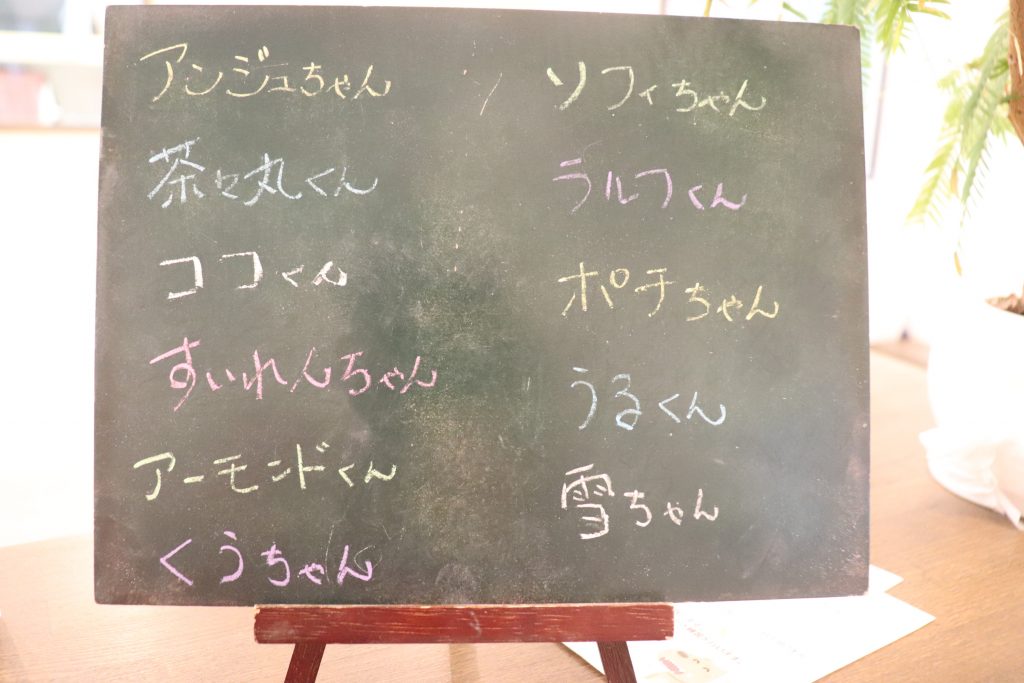 アンジュちゃん
茶々丸くん
ココくん
すいれんちゃん
アーモンドくん
くうちゃん
ソフィちゃん
ラルフくん
ポチちゃん
うるくん
雪ちゃん